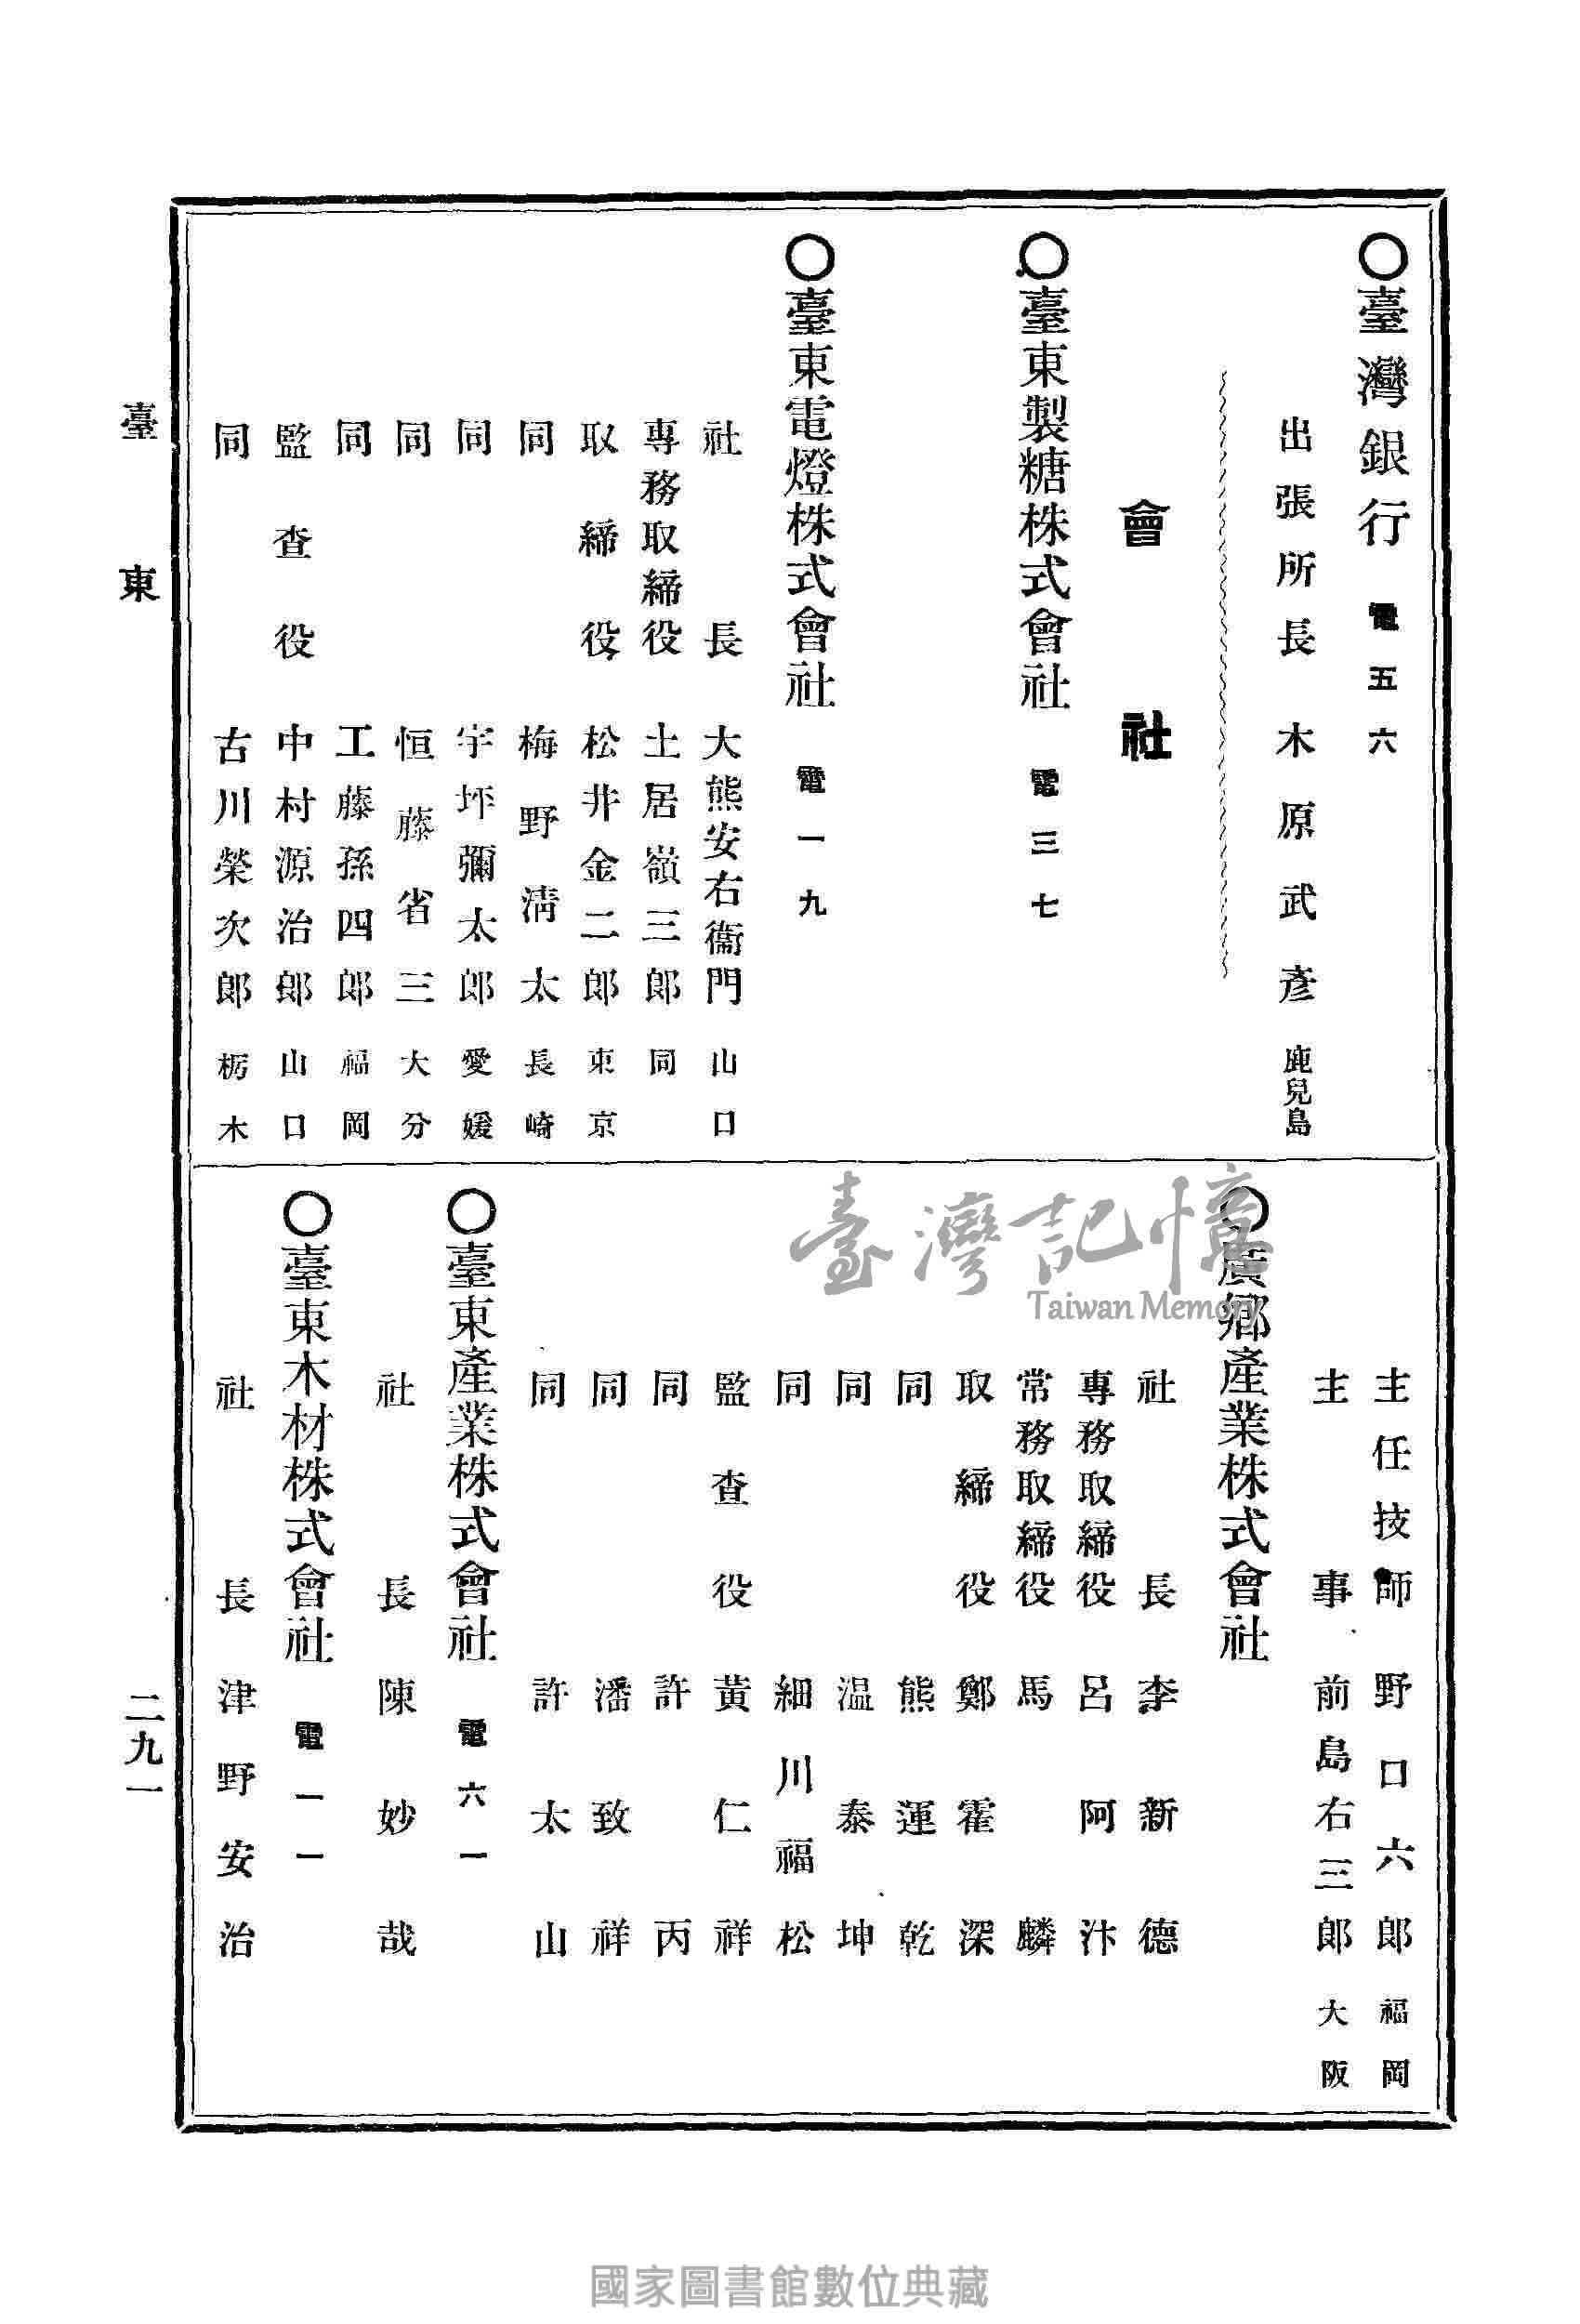 ○臺灣銀行 電五六
出張所長 木原武彥 鹿兒島
會社
○臺東製糖株式會社 電三七
○臺東電燈株式會社 電一九
社長 大熊安右衞門 山口
專務取締役 土居嶺三郎 同
取締役 松井金二郎 東京
同 梅野淸太 長崎
同 宇坪彌太郎 愛媛
同 恒藤省三 大分
同 工藤孫四郎 福岡
監查役 中村源治郎 山口
同 古川榮次郎 栃木
主任技師 野口六郎 福岡
主事 前島右三郎 大阪
○廣鄉產業株式會社
社長 李新德
專務取締役 呂阿汴
常務取締役 馬麟
取締役 鄭霍深
同 熊運乾
同 温泰坤
同 細川福松
監查役 黃仁祥
同 許丙
同 潘致祥
同 許太山
○臺東產業株式會社 電六一
社長 陳妙哉
○臺東木材株式會社 電一一
社長 津野安治
臺東
二九一
臺灣記憶
Taiwan Memory
國家圖書館數位典藏